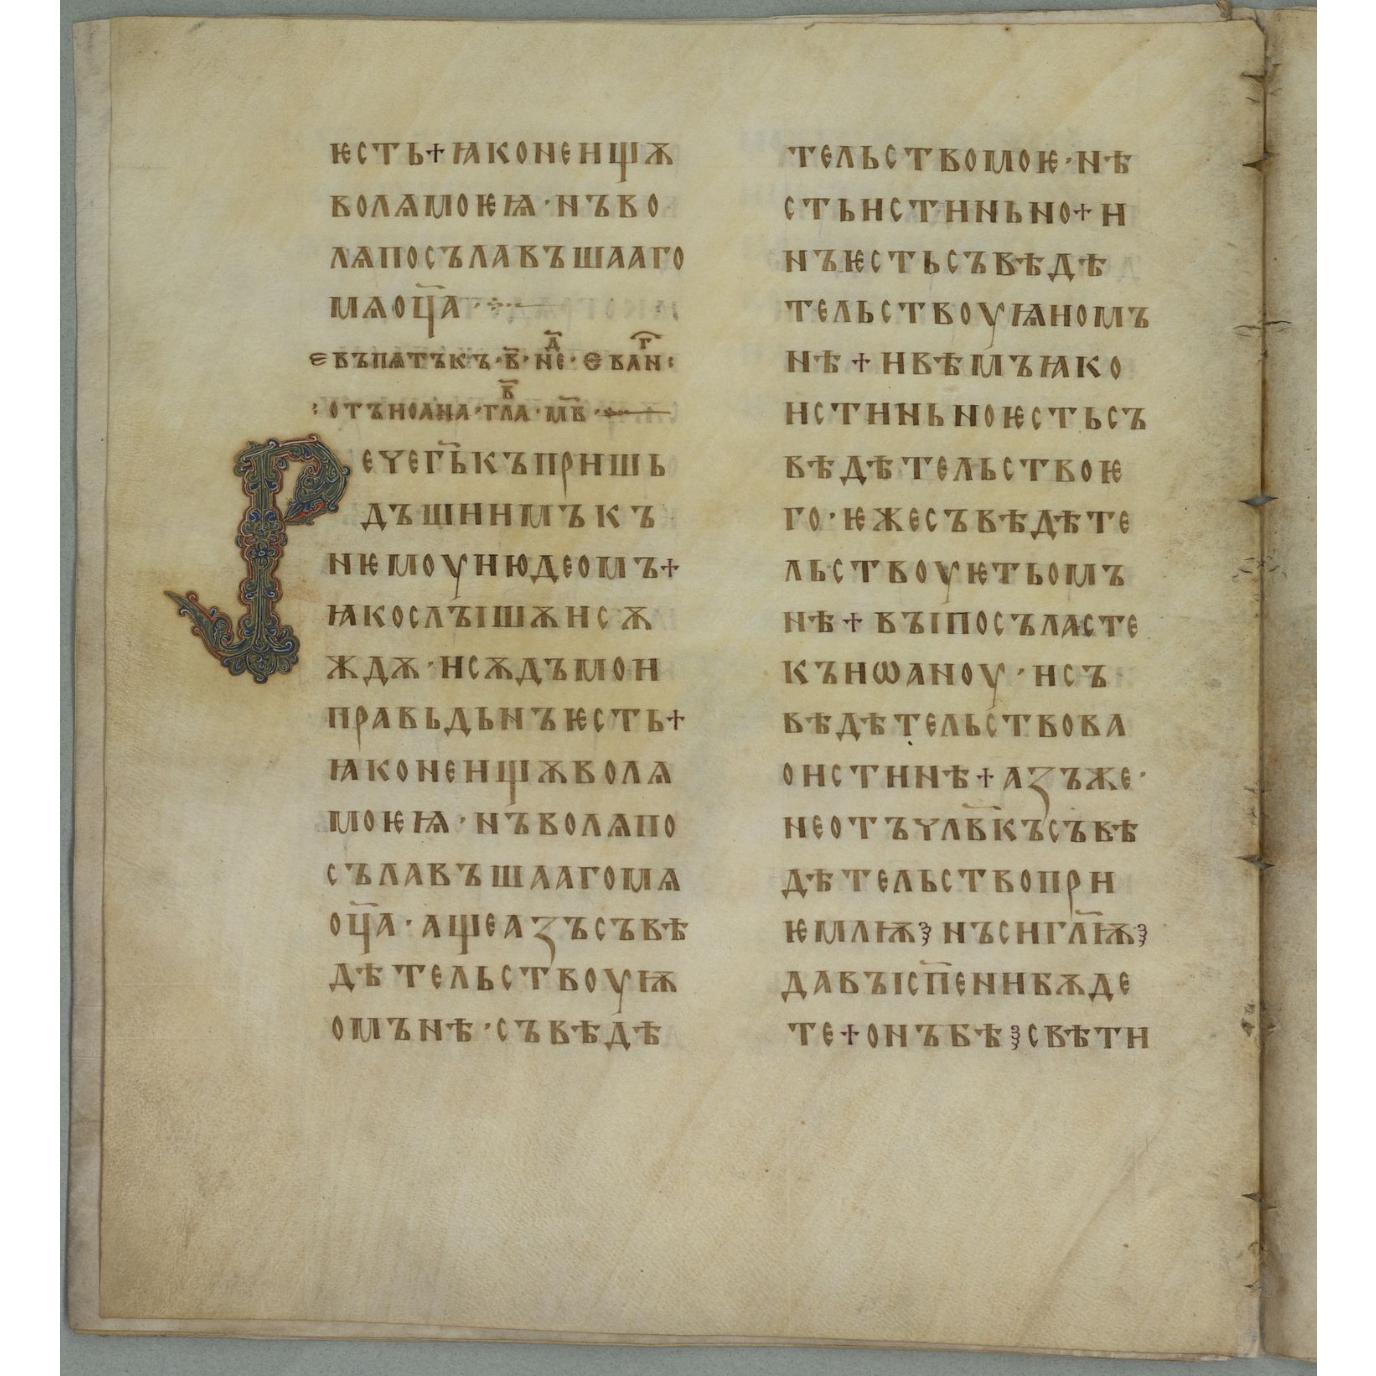 ѥсть+ꙗконеищѫ
волѧмоѥѩ·нъво
лѧпосълавъшааго
мѧоц҃а·
евъпѧтъкъ·в҃·не·д҃·еваи·г҃:
:отъиоана·гла·в҃·мв҃·
Речег҃ькъпришь
дъшиимъкъ
нѥмоуиюдеомъ+
ꙗкослъішѫисѫ
ждѫ·исѫдъмои
правьдьнъѥсть+
ꙗконеищѫволѧ
моѥѩ·нъволѧпо
сълавъшаагомѧ
оц҃а·ащеазъсъвѣ
дѣтельствоуѭ
омънѣ·съвѣдѣ
тельствомоѥ·нѣ
стьистиньно+и
нъѥстьсъвѣдѣ
тельствоуѩиомъ
нѣ+ивѣмъꙗко
истиньноѥстьсъ
вѣдѣтельствоѥ
го·ѥжесъвѣдѣте
льствоуѥтьомъ
нѣ+въіпосъласте
къиѡаноу·исъ
вѣдѣтельствова
оистинѣ+азъже·
неотъчл҃вкъсъвѣ
дѣтельствопри
ѥмлѭ·нъсигл҃ѭ·
давъісп҃енибѫде
те+онъбѣ·свѣти